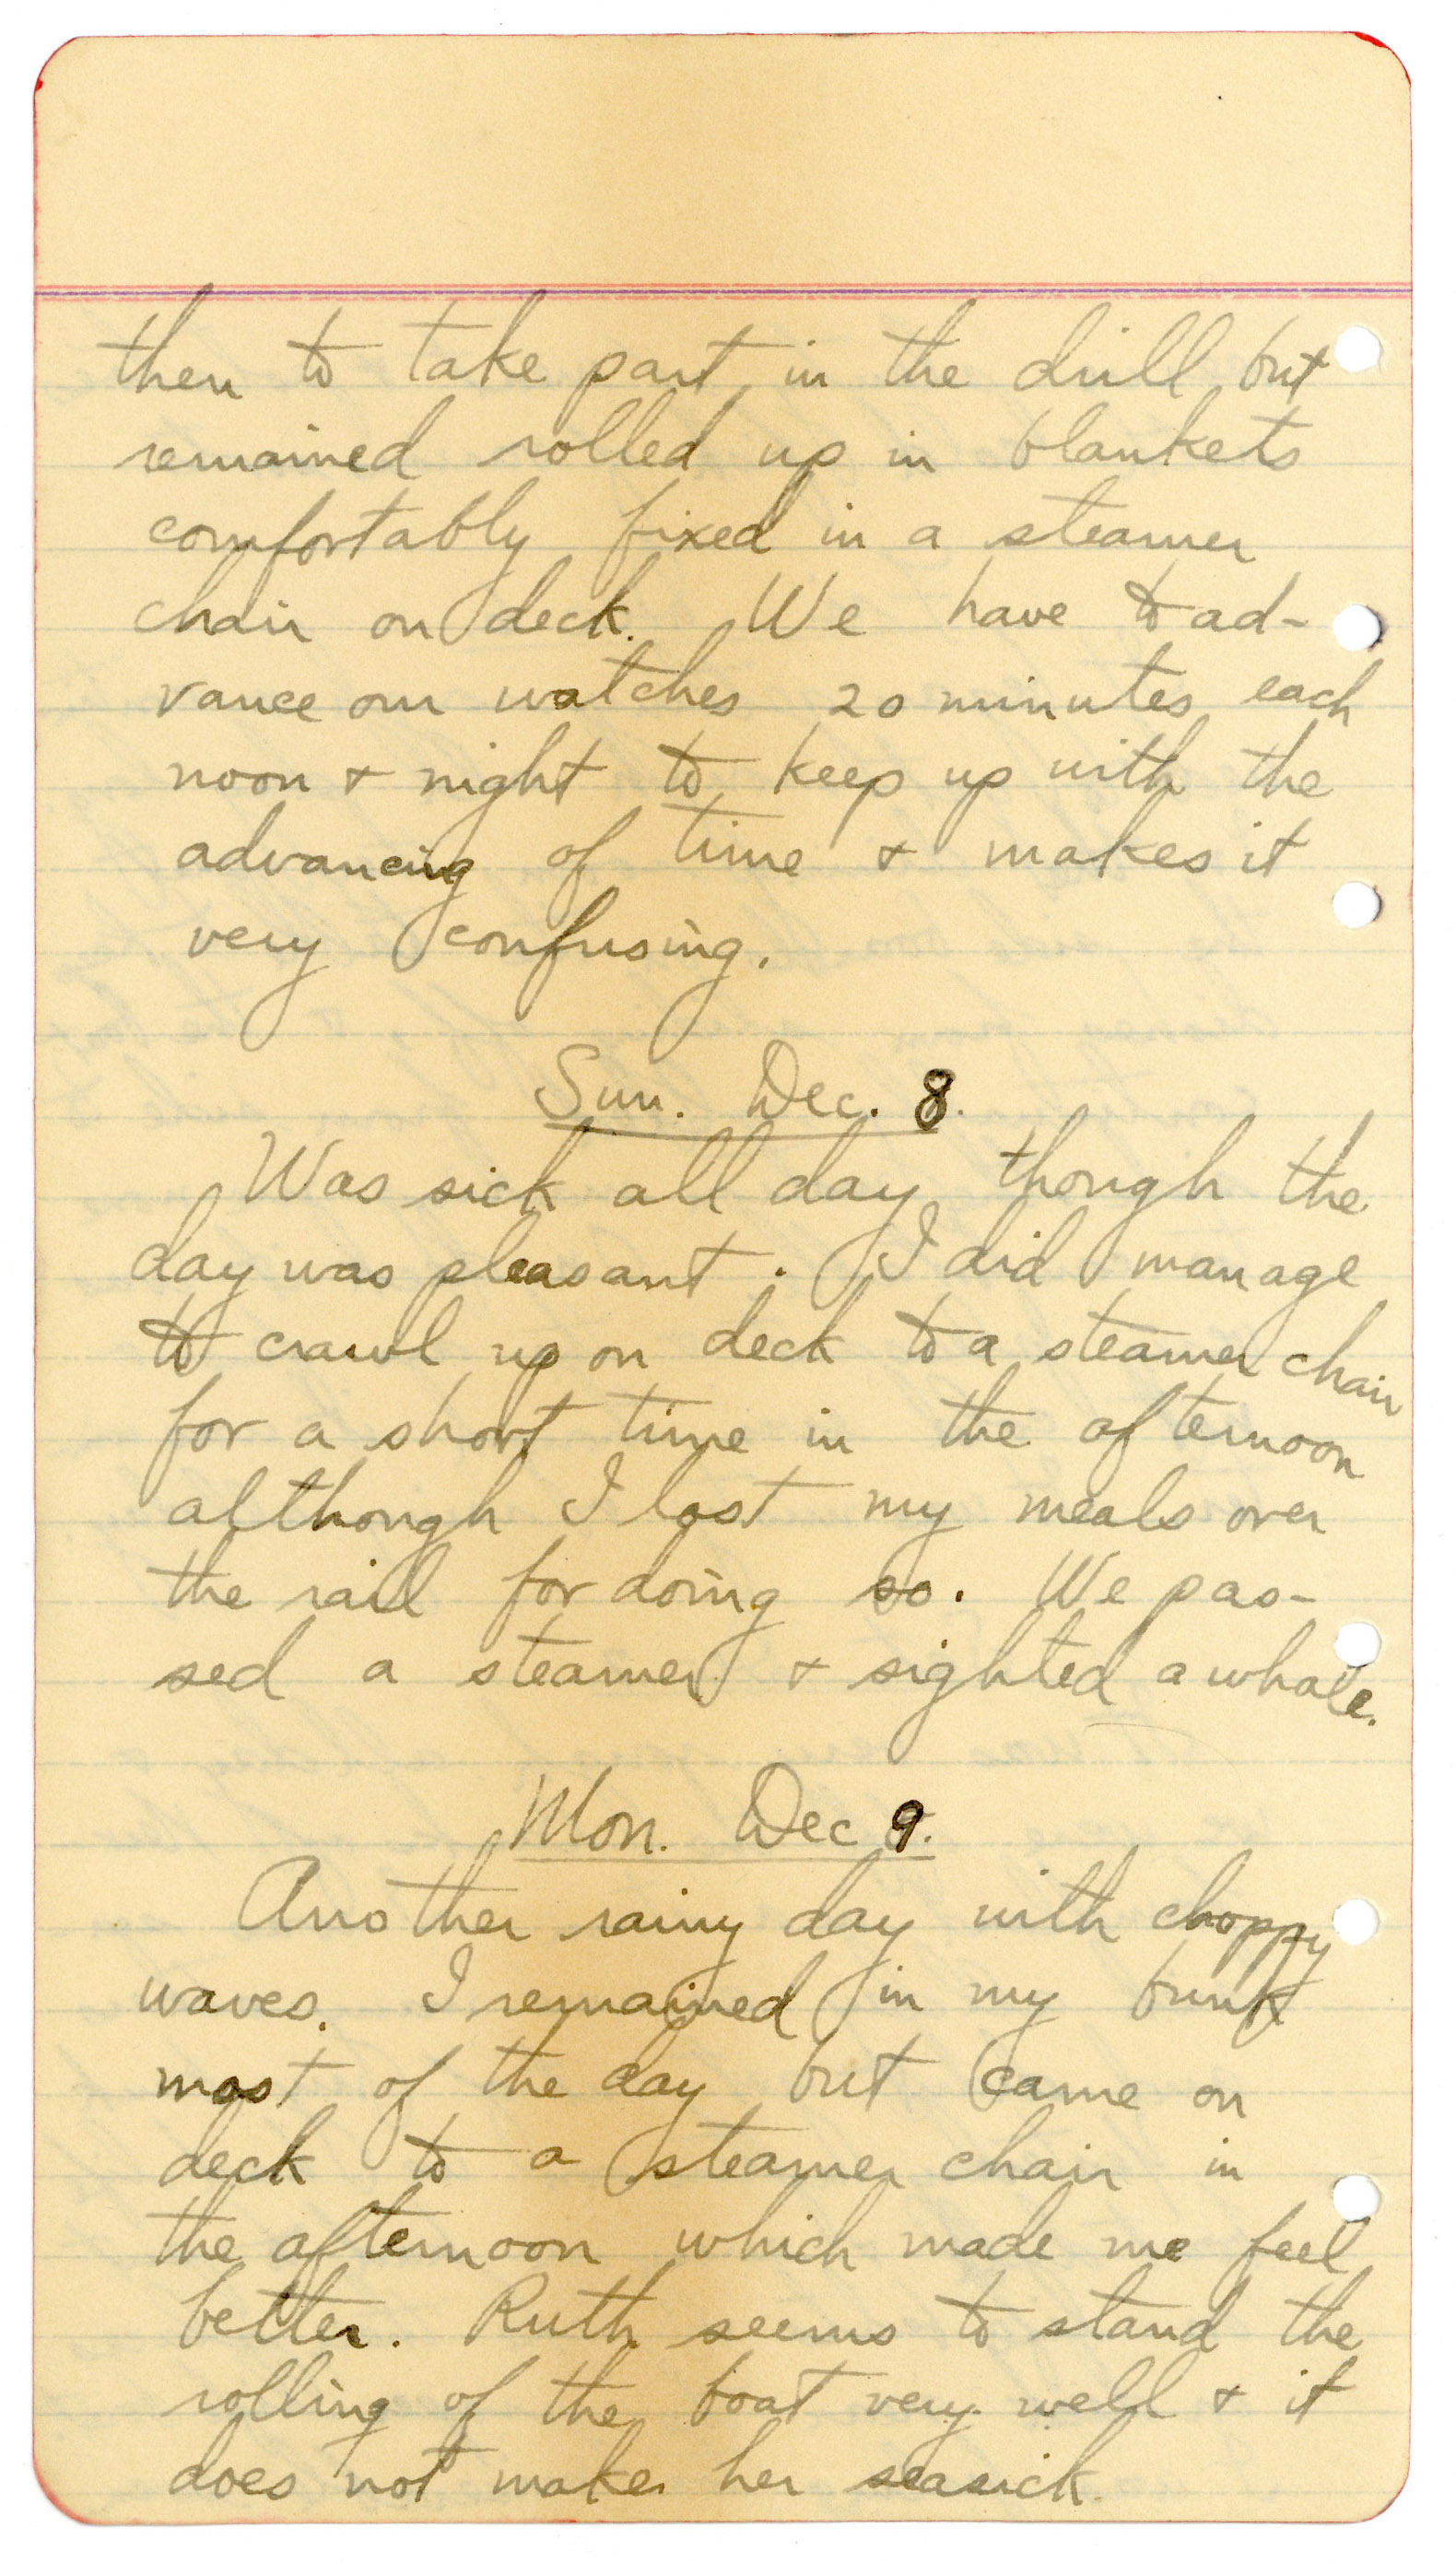 then to take part in the drill but
remained rolled up in blankets
comfortably fixed in a steamer
chair on deck. We have to ad-
vance our watches 20 minutes each
noon + night to keep up with the
advancing of time + makes it
very confusing.
Sun. Dec. 8.
Was sick all day though the
day was pleasant. I did manage
to crawl up on deck to a steamer chair
for a short time in the afternoon
although I lost my meals over
the rail for doing so. We pas-
sed a steamer + sighted a whale.
Mon. Dec 9.
Another rainy day with choppy
waves. I remained in my bunk
most of the day but came on
deck to a steamer chair in
the afternoon which made me feel
better. Ruth seems to stand the
rolling of the boat very well + it
does not make her seasick.